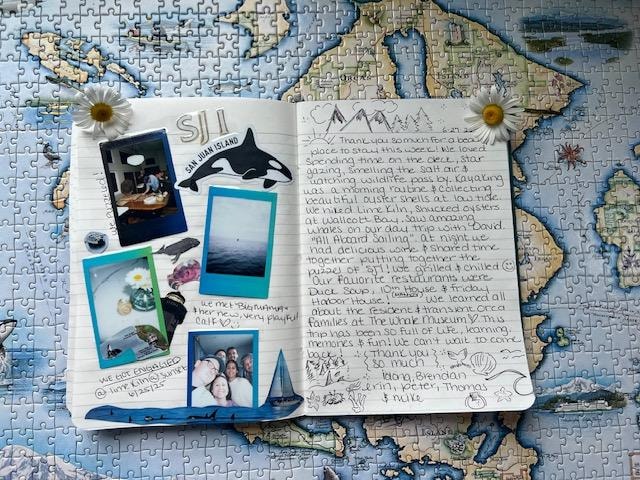 SJI
SAN JUAN ISLAND
we met Big Mama
& her new, very playful
calf ♡
WE GOT ENGAGED
@ Lime Kiln @ Sunset
6/25/25
Thank you so much for a beautiful
place to stay this week! We loved
spending time on the deck, star
gazing, smelling the salt air &
watching wildlife pass by. Kayaking
as a morning routine & collecting
beautiful oyster shells at low tide.
We hiked Lime Kiln, shucked oysters
at Wallcott Bay, Saw amazing
whales on our day trip with David.
"All Aboard Sailing" At night we
had delicious wine & spent time
together putting together the
puzzel of SJI! we grilled & chilled
Our favorite restaurants were
Duck Soup, 10m House & Friday
Harbor House! we learned all
about the resident & transient Orca
Families at The Whale Museum! This
trip has been so full of life, learning,
memories & fun! We can't wait to come
back! Thank you
so much!
Brenda
erin, Peter, Thomas
& Mike